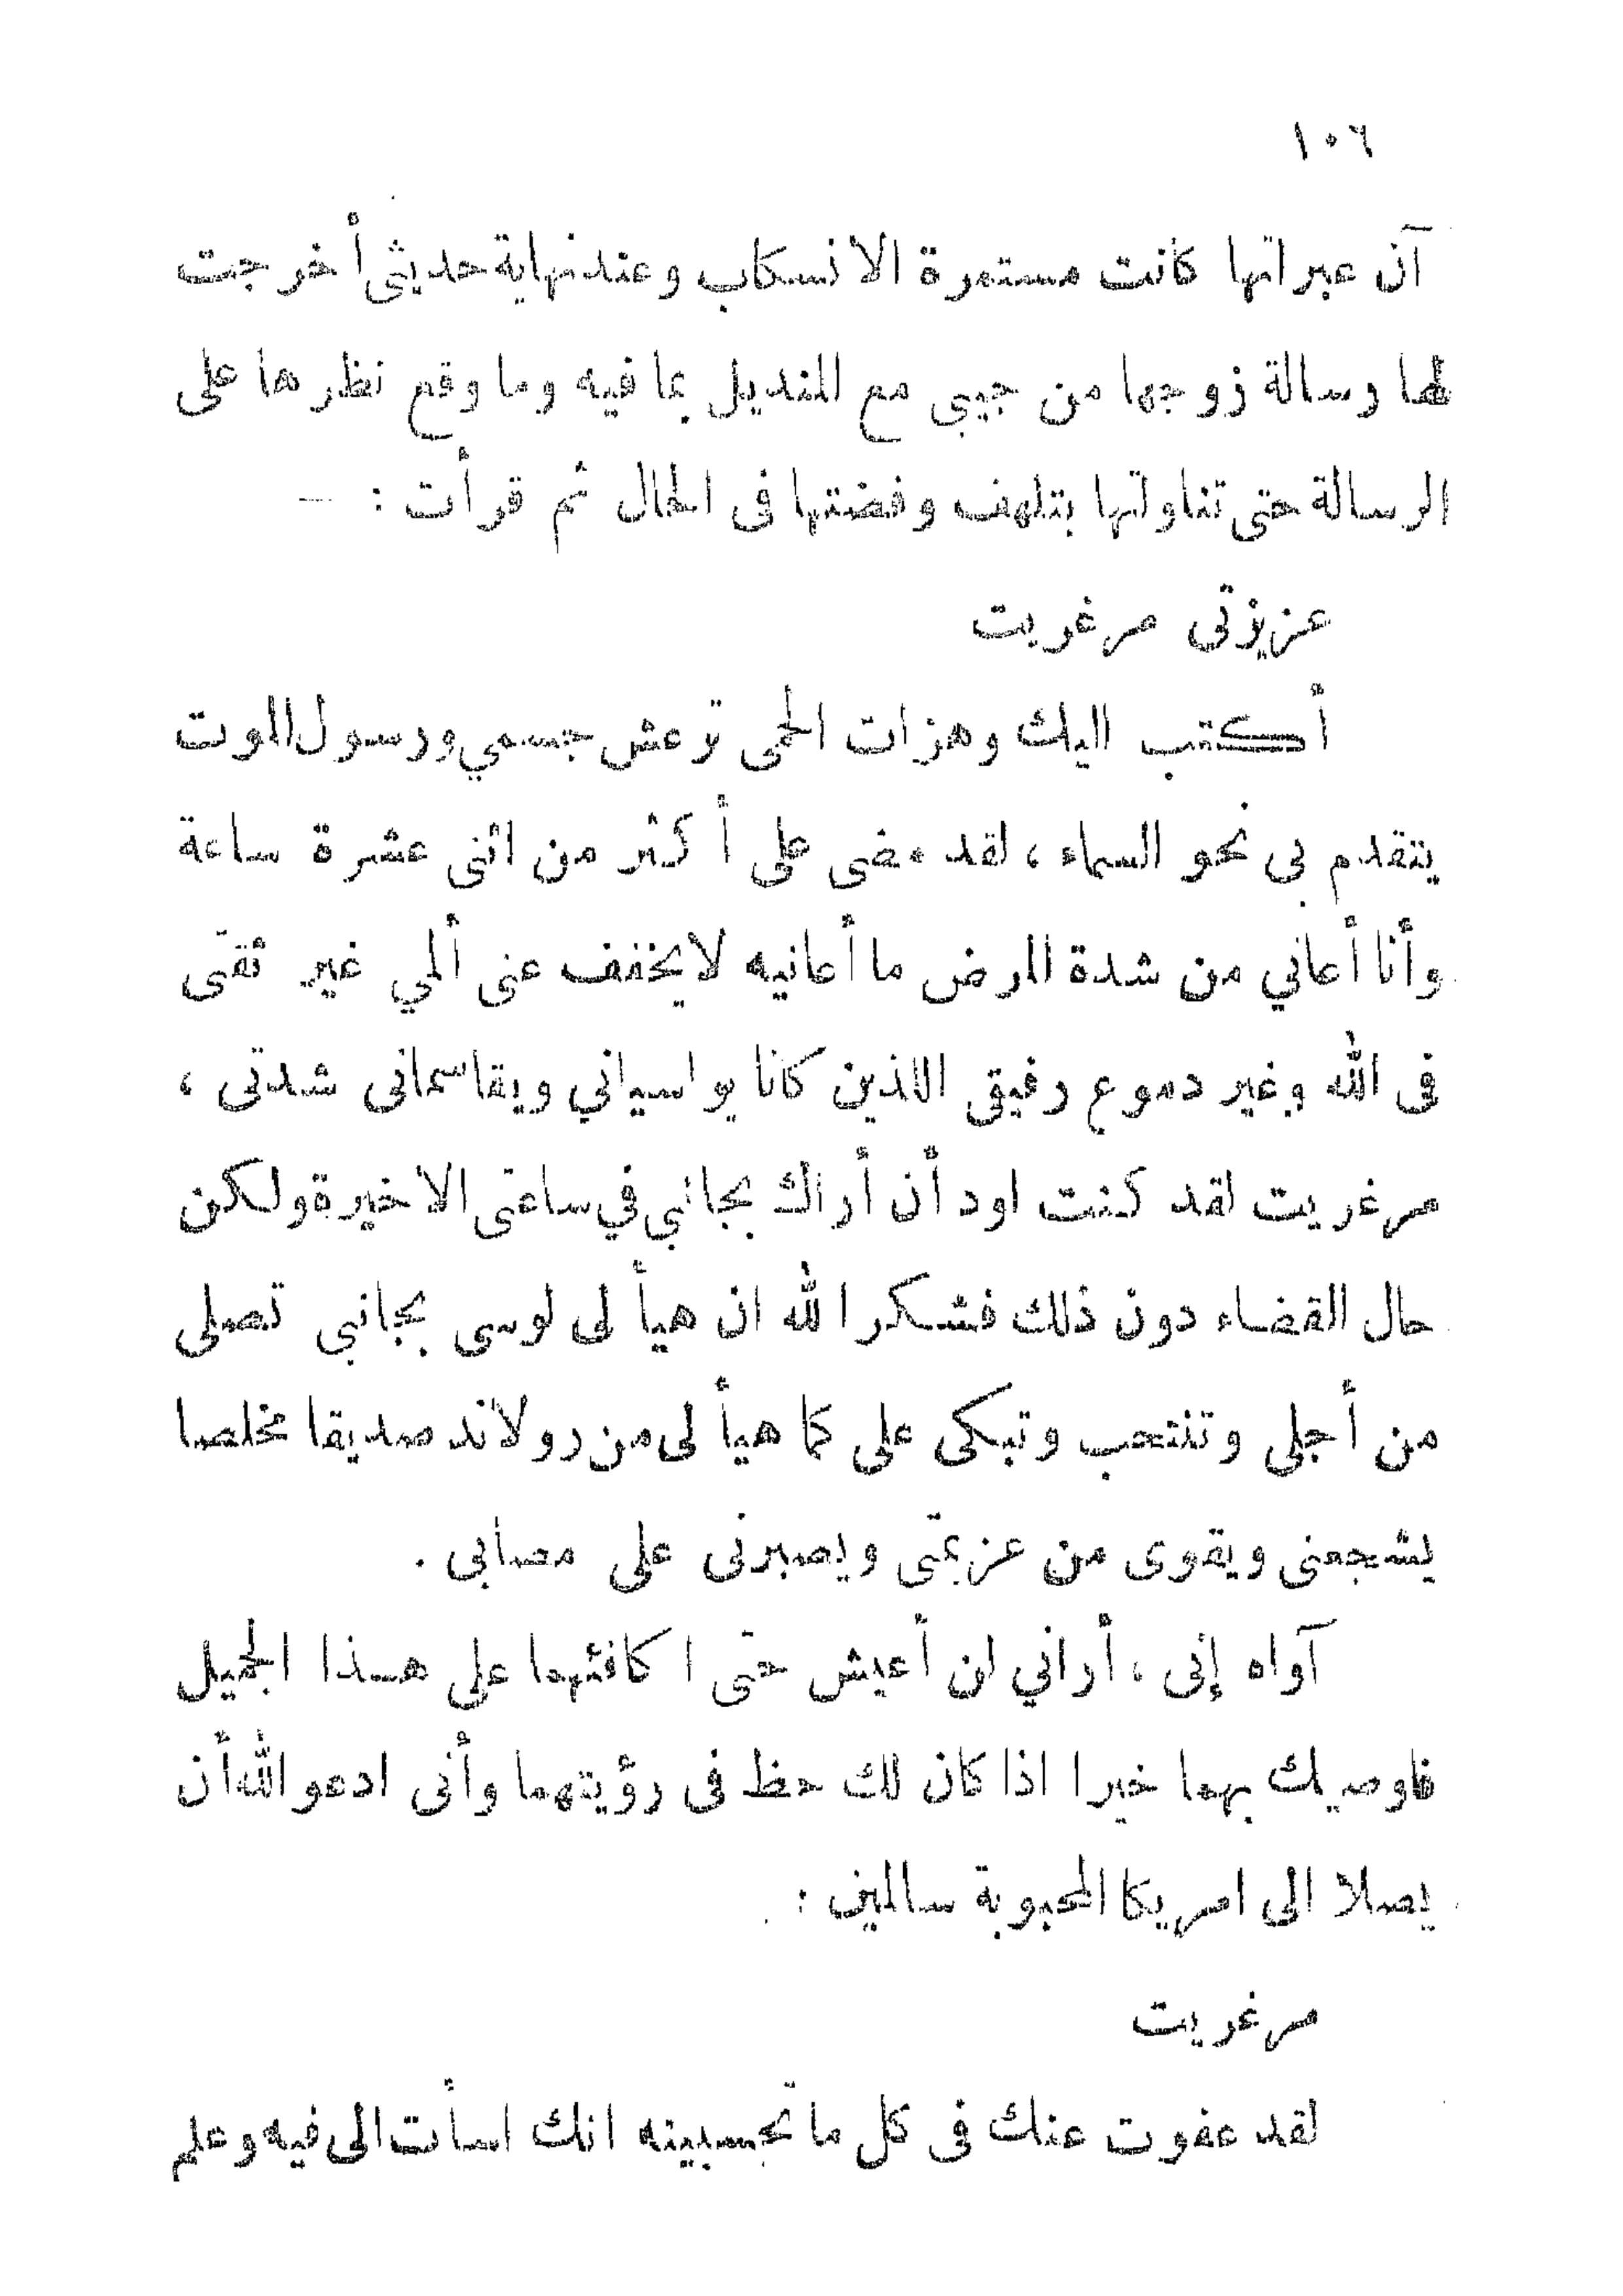 ١٠٦
آن عبراتها كانت مستمرة الانسكاب وعند نهاية حديثى أخرجت
لها رسالة زوجها من جيبى مع المنديل بما فيه وما وقع نظرها على
الرسالة حتى تناولتها بتلهف وفضتها فى الحال ثم قرأت : —
عزيزتى مرغريت
أكتب اليك وهزات الحمى ترعش جسمي ورسول الموت
يتقدم بى نحو السماء ، لقد مضى على أكثر من اثنى عشرة ساعة
وأنا أعاني من شدة المرض ما أعانيه لا يخفف عنى ألمي غير ثقتى
فى الله وغير دموع رفيقى اللذين كانا يواسياني ويقاسمانى شدتى ،
مرغريت لقد كنت اود أن أراك بجانبي في ساعتى الاخيرة ولكن
حال القضاء دون ذلك فشكرا لله ان هيأ لى لوسى بجانبي تصلى
من أجلى وتنتحب وتبكى على كما هيأ لى من رولاند صديقا مخلصا
يشجعنى ويقوى من عزيمتى ويصبرنى على مصابى .
آواه إنى ، أراني لن أعيش حتى اكافئهما على هذا الجميل
فاوصيك بهما خيرا اذا كان لك حظ فى رؤيتهما وأنى ادعو الله أن
يصلا الى امريكا المحبوبة سالمين :
مرغريت
لقد عفوت عنك فى كل ما تحسبينه انك اسأت الى فيه وعلم